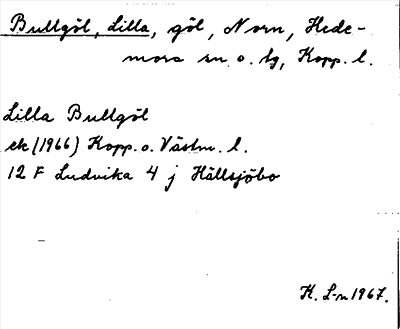 Bullgöl, Lilla, göl, Norn, Hede-
mora sn o. tg, Kopp. l.
Lilla Bullgöl
ek (1966) Kopp. o. Västm. l.
12 F Ludvika 4 j Hällsjöbo
K. L-n 1967.